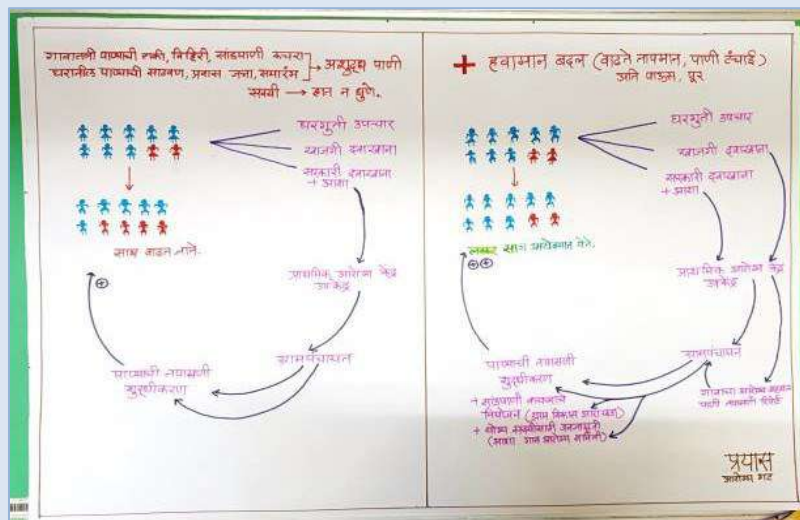 गावातली पाण्याची टाकी, विहिरी, सांडपाणी कचरा
घरातील पाण्याची साठवण, प्रवास जत्रा, समारंभ
→ अशुद्ध पाणी
सवयी → हात न धुणे.
घरगुती उपचार
खाजगी दवाखाना
सरकारी दवाखाना
+ आशा
साथ वाढत जाते.
+
प्राथमिक आरोग्य केंद्र
उपकेंद्र
ग्रामपंचायत
पाण्याची तपासणी
शुद्धीकरण
+ हवामान बदल (वाढते तापमान, पाणी टंचाई)
अति पाऊस, पूर
घरगुती उपचार
खाजगी दवाखाना
सरकारी दवाखाना
+ आशा
लवकर साथ आटोक्यात येते.
++
प्राथमिक आरोग्य केंद्र
उपकेंद्र
ग्रामपंचायत
पाण्याची तपासणी
शुद्धीकरण
+ सांडपाणी कचऱ्याचे
नियोजन (ग्राम विकास आराखडा)
+ योग्य सवयींसाठी जनजागृती
गावाचा आरोग्य
पाणी तपासणी रिपोर्ट
प्रयास
आरोग्य गट